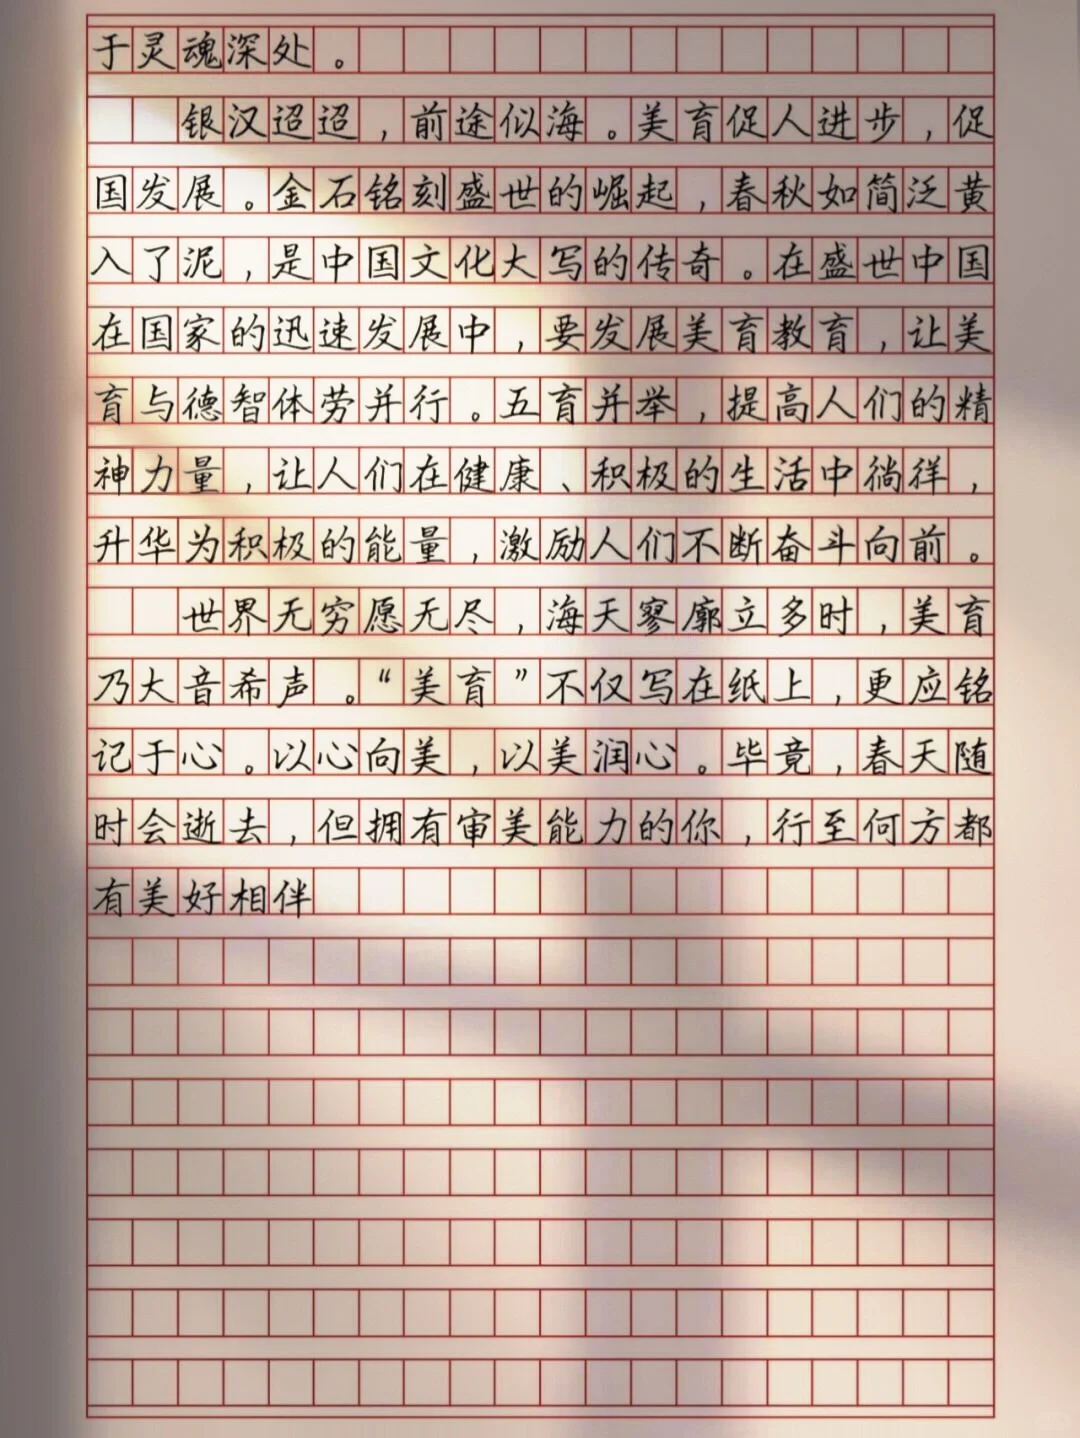 于灵魂深处。
银汉迢迢，前途似海。美育促人进步，促
国发展。金石铭刻盛世的崛起，春秋如简泛黄
入了泥，是中国文化大写的传奇。在盛世中国
在国家的迅速发展中，要发展美育教育，让美
育与德智体劳并行。五育并举，提高人们的精
神力量，让人们在健康、积极的生活中徜徉，
升华为积极的能量，激励人们不断奋斗向前。
世界无穷愿无尽，海天寥廓立多时，美育
乃大音希声。“美育”不仅写在纸上，更应铭
记于心。以心向美，以美润心。毕竟，春天随
时会逝去，但拥有审美能力的你，行至何方都
有美好相伴